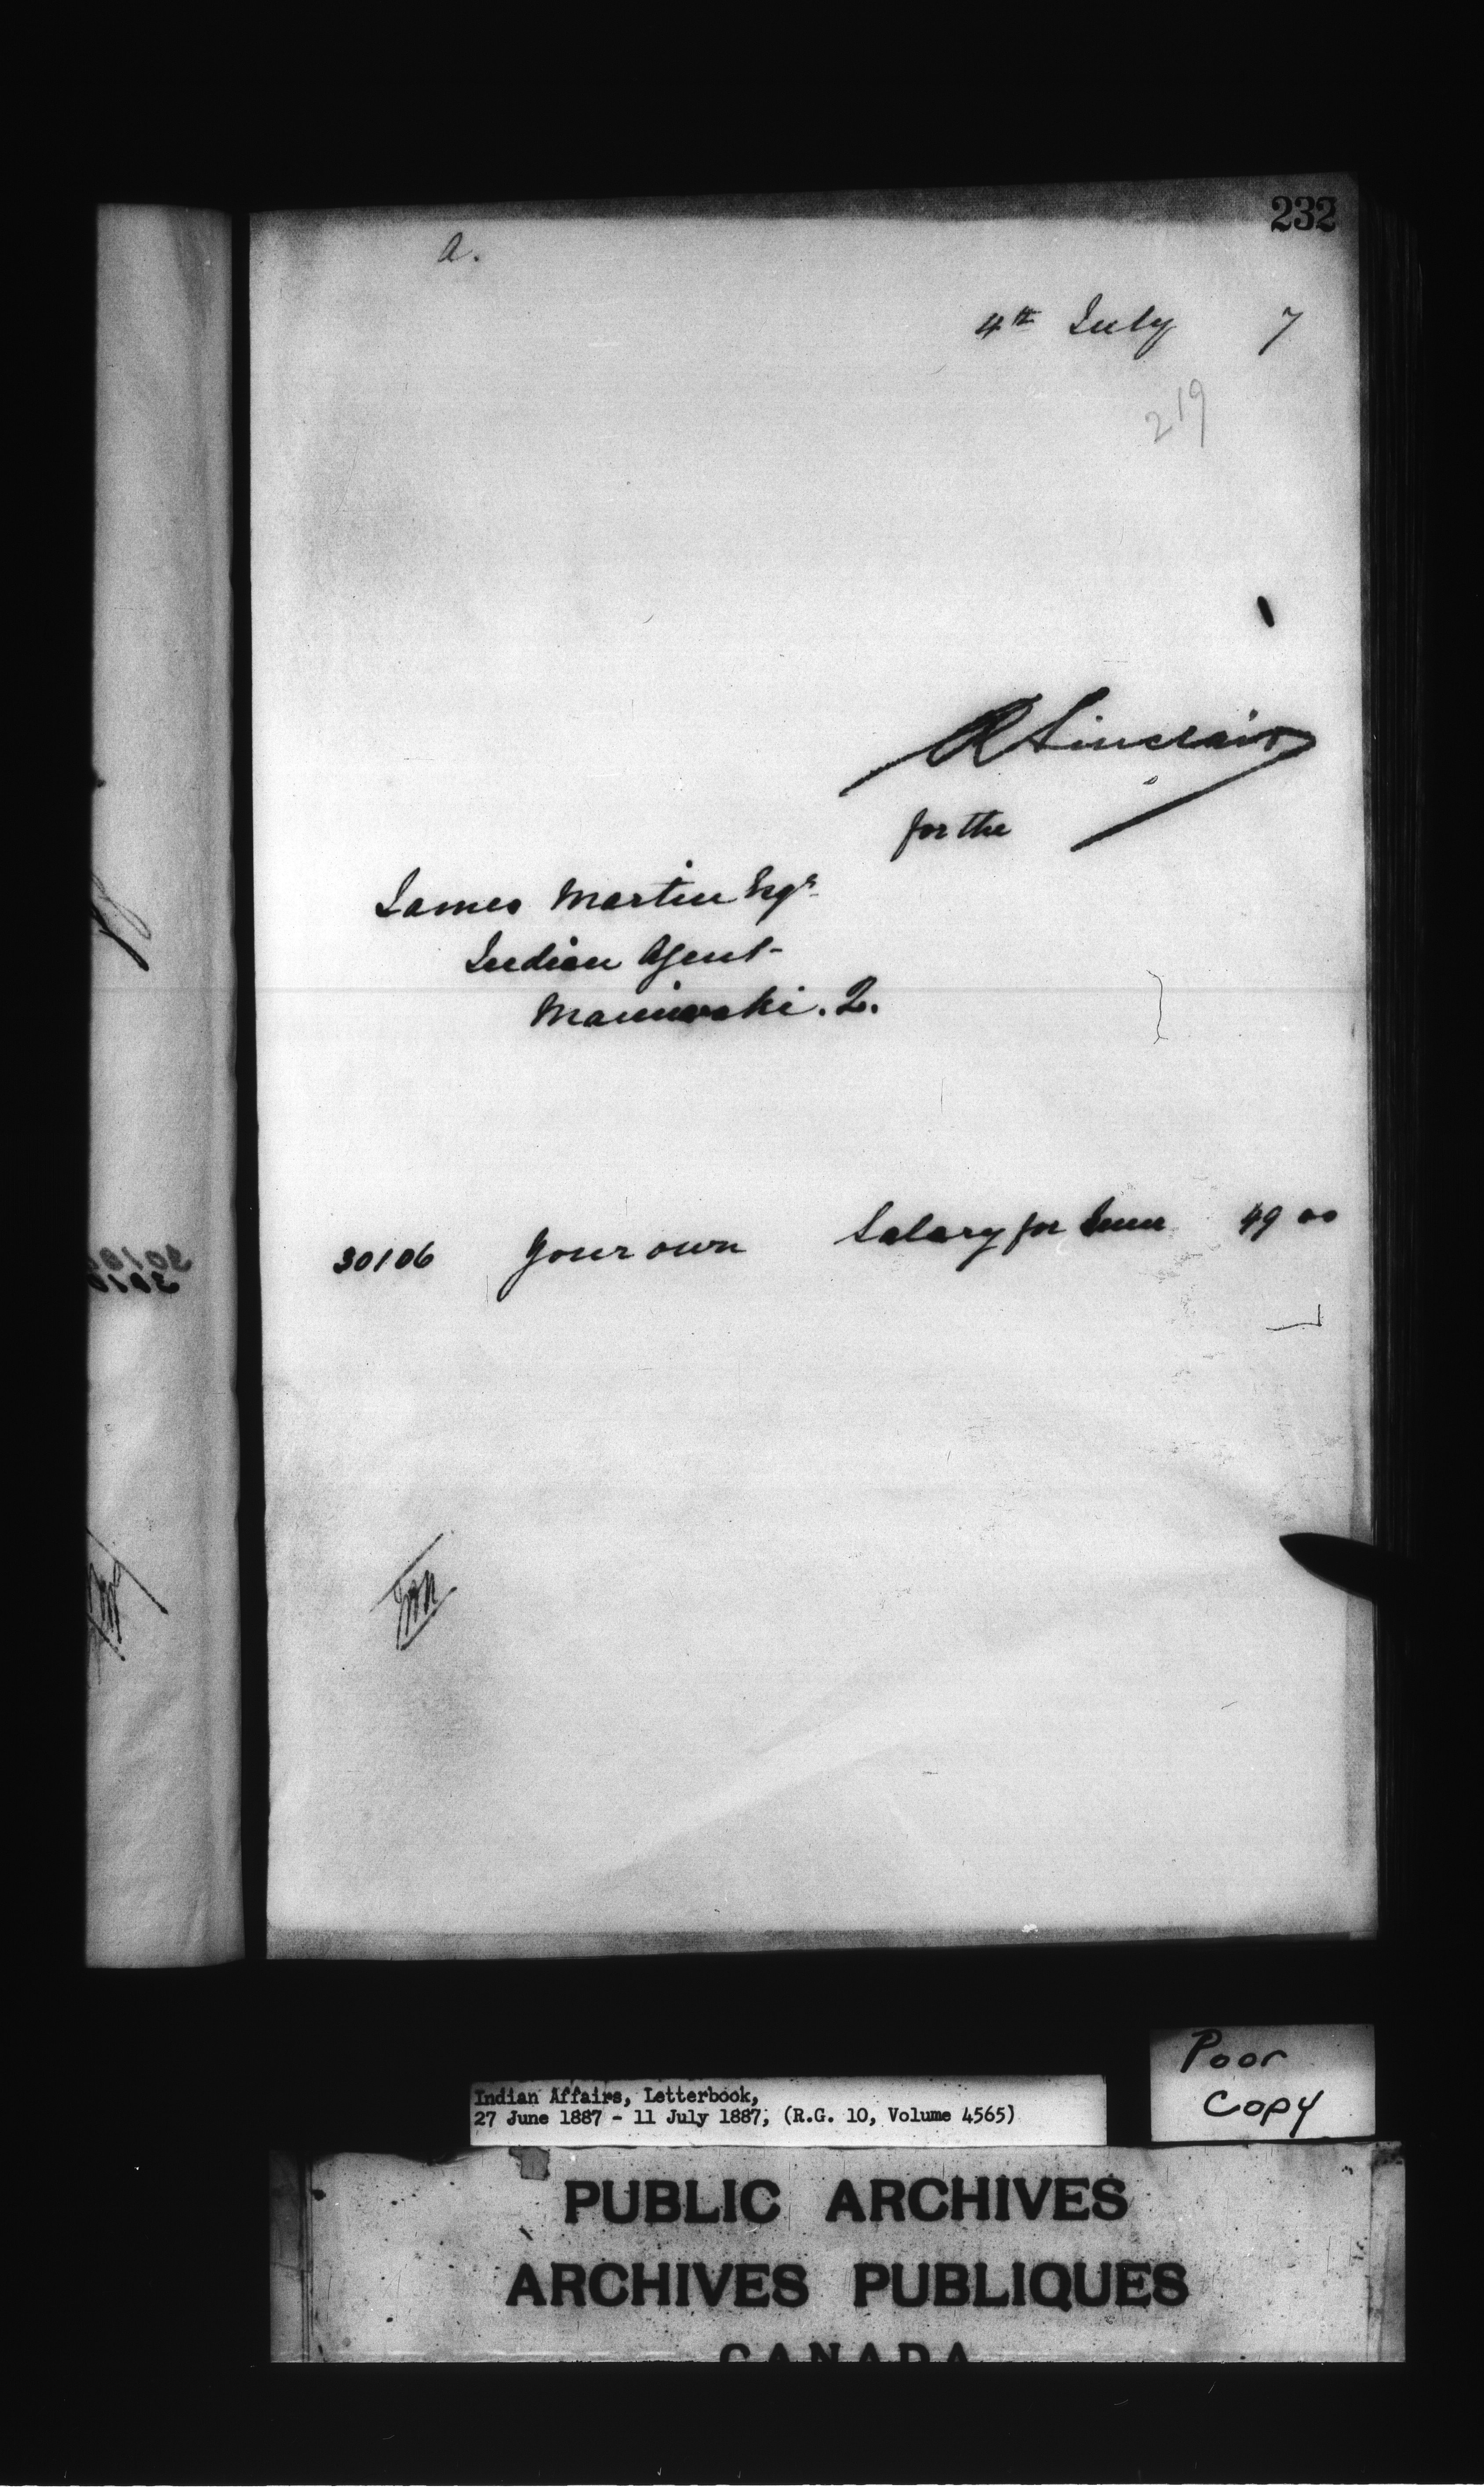 232
a.
4th July 7
219
R Sinclair
for the
James Martin Esqr
Indian Agent
Maniwaki. Q.
30106 Your own Salary for June 49 00
Indian Affairs, Letterbook,
27 June 1887 - 11 July 1887, (R.G. 10, Volume 4565)
Poor
Copy
PUBLIC ARCHIVES
ARCHIVES PUBLIQUES
CANADA